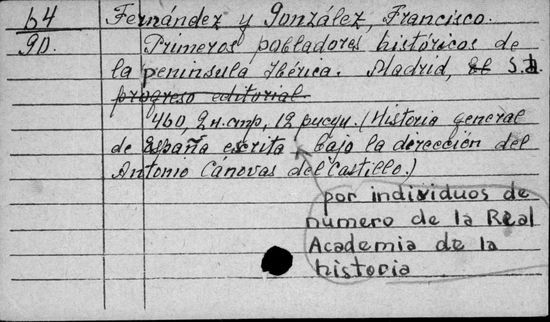 64 Fernández y González, Francisco.
90. Primeros pobladores históricos de
la península Ibérica. Madrid, El S.a.
progreso editorial.
460, 2 н. стр., 12 рисун. (Historia general
de España escrita bajo la dirección del
Antonio Cánovas del Castillo.)
por individuos de
número de la Real
Academia de la
historia